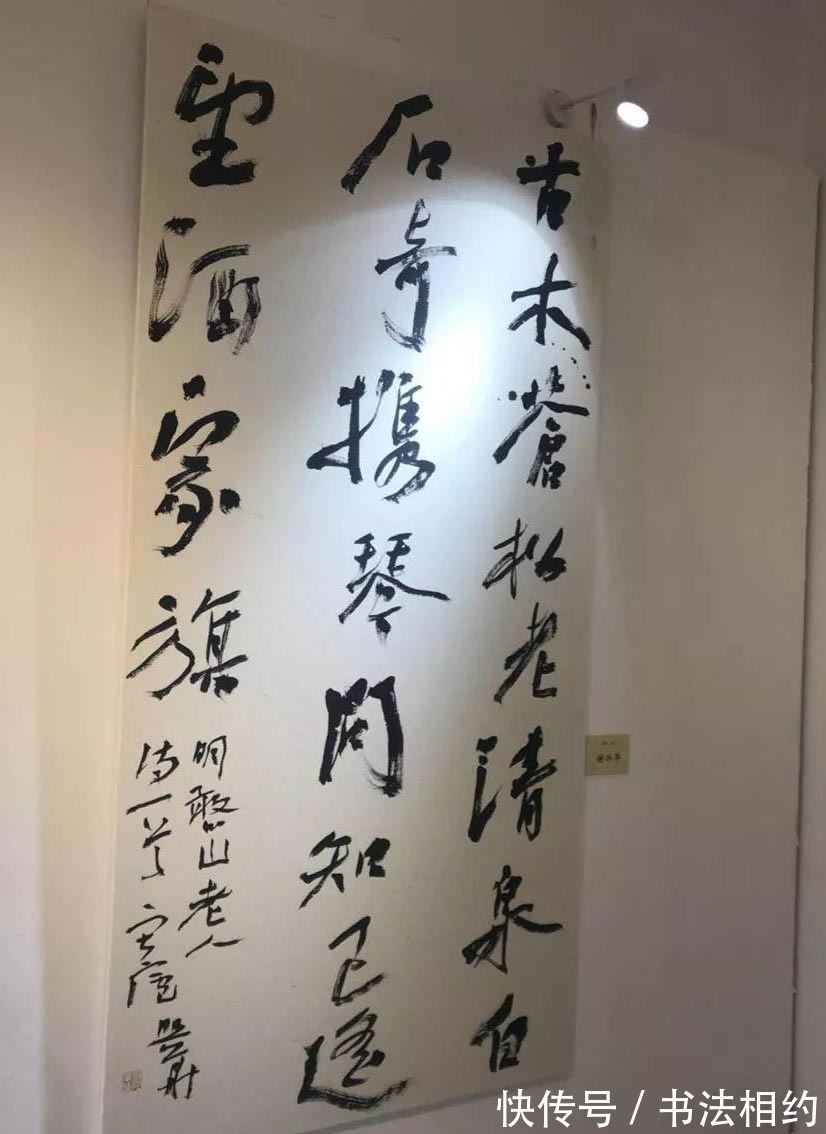 古木蒼松老清泉白
石奇携琴問知己遙
望酒家旗
明憨山老人
詩一首
快传号 / 书法相约